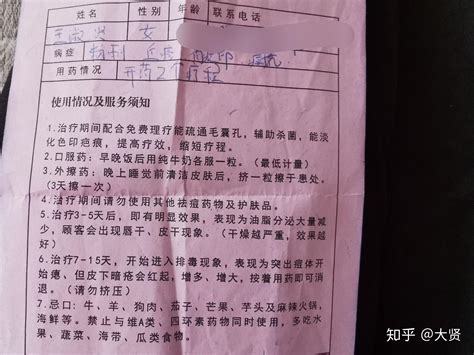 姓名 性别 年龄 联系电话
女
病症 痘痘 痘印 痘坑
用药情况 开药2个疗程
使用情况及服务须知
1.治疗期间配合免费理疗能疏通毛囊孔，辅助杀菌，能淡
化色印疤痕，提高疗效，缩短疗程。
2.口服药：早晚饭后用纯牛奶各服一粒。（最低计量）
3.外擦药：晚上睡觉前清洁皮肤后，挤一粒擦于患处。
（3天擦一次）
4.治疗期间请勿使用其他祛痘药物及护肤品。
5.治疗3-5天后，即有明显效果，表现为油脂分泌大量减
少，顾客会出现唇干、皮干现象。（干燥越严重，效果越
好）
6.治疗7-15天，开始进入排毒现象，表现为突出痘体开
始瘪、但皮下暗疮会红起，增多、增大，按着用药即可消
退。（请勿挤压）
7.忌口：牛、羊、狗肉、茄子、芒果、芋头及麻辣火锅，
海鲜等。禁止与维A类、四环素药物同时使用，多吃水
果、蔬菜、海带、瓜类食物。
知乎 @大贤